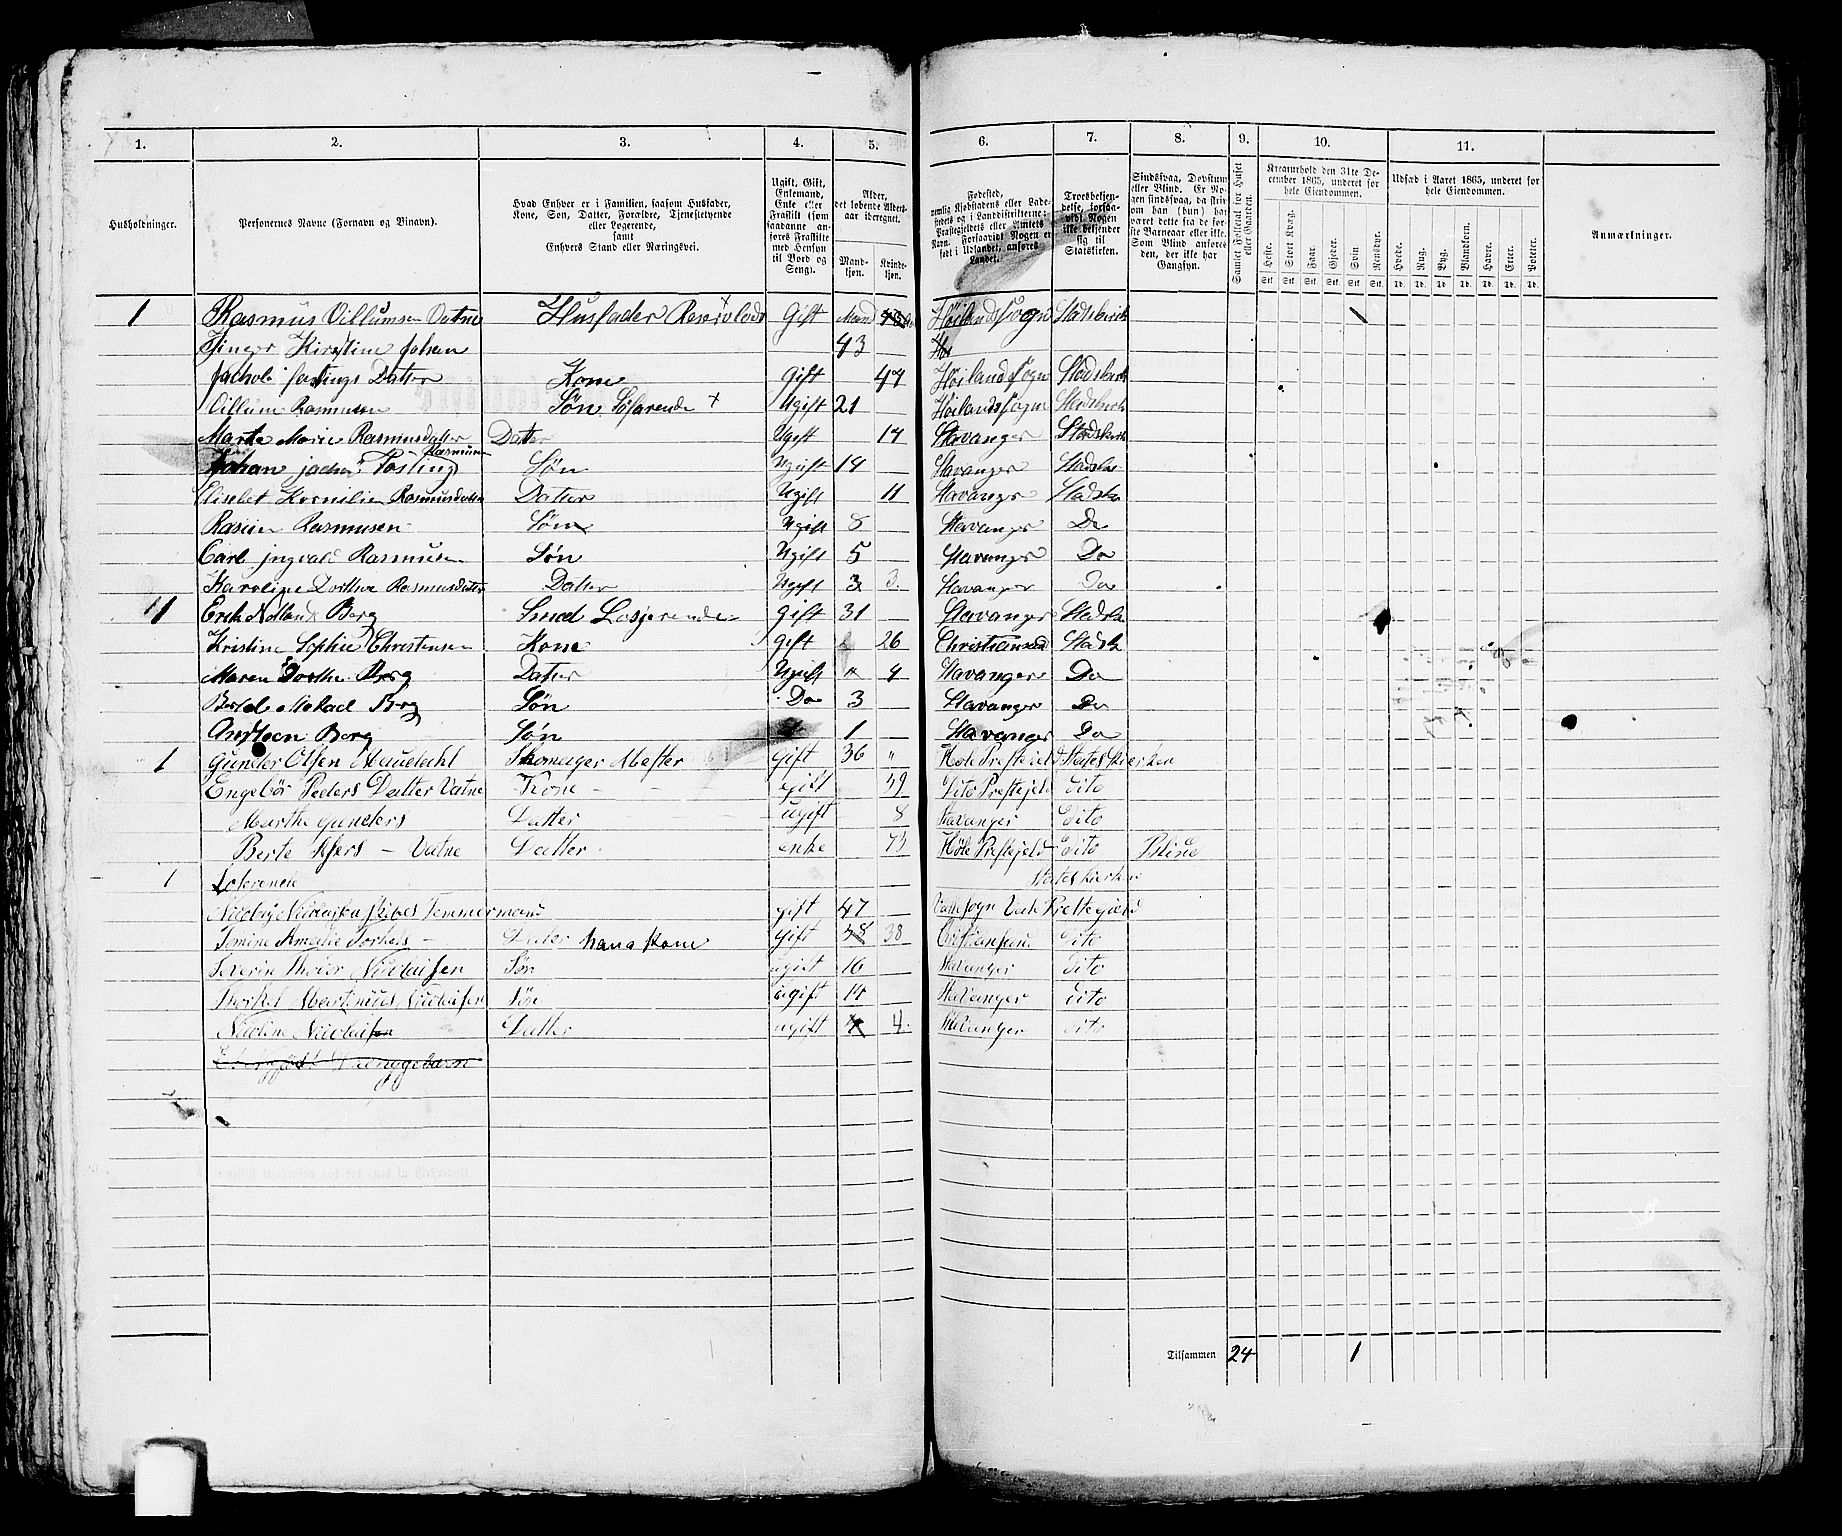 1. 2. 3. 4. 5. 6. 7. 8. 9. 10. 11.
Husholdninger.
Personernes Navne (Fornavn og Binavn).
Hvad Enhver er i Familien, saasom Husfader, Kone, Søn, Datter, Forældre, Tjenestetyende eller Logerende, samt Enhvers Stand eller Næringsvei.
Ugift, Gift, Enkemand, Enke eller Fraskilt (som saadanne anføres Fraskilte med Hensyn til Bord og Seng).
Alder, det løbende Aldersaar iberegnet.
Mandkjøn. Kvindekjøn.
Fødested, nemlig Kjøbstadens eller Ladestedets og i Landdistrikterne: Præstegjeldets eller Amtets Navn. Forsaavidt Nogen er født i Udlandet, anføres Landet.
Troesbekjendelse, forsaavidt Nogen ikke bekjender sig til Statskirken.
Sindssvag, Døvstum eller Blind. Er Nogen sindssvag, da skriv om han (hun) har været dette fra de første Barneaar eller ikke. Som Blind anføres den, der ikke har Gangsyn.
Samlet Folketal for Huset eller Gaarden.
Kreaturhold den 31te December 1865, underet for hele Eiendommen.
Heste. Stort Kvæg. Faar. Gjeder. Svin. Rensdyr.
Udsæd i Aaret 1865, underet for hele Eiendommen.
Hvede. Rug. Byg. Blandkorn. Havre. Erter. Poteter.
Anmærkninger.
Stk. Stk. Stk. Stk. Stk. Stk. Td. Td. Td. Td. Td. Td. Td.
1 Rasmus Villumsen Vatne Husfader Gift Mand Höilandssogn
Kirstine Johan 43
Datter Kone Gift 47 Höilandssogn
Villum Rasmusen Søn Søfarende + Ugift 21 Höilandssogn
Marte Marie Rasmusdatter Datter Ugift 14 Stavanger
Rasmusen
Johan Jacob Posting Søn Ugift 14 Stavanger
Elisebet Kornilia Rasmusdatter Datter Ugift 11 Stavanger
Rasmusen Søn Ugift 8 Stavanger Do
Carl Ingvald Rasmusen Søn Ugift 5 Stavanger Do
Karoline Dorthea Rasmusdatter Datter Ugift 3 3. Stavanger Do
Erik Berg Smed Losjerende Gift 31 Stavanger
Kristine Sophie Christensen Kone Gift 26 Christiansand
Maren Dorthe Berg Datter Ugift " 4 Stavanger Do
Berg Søn Do 3 Stavanger Do
Berg Søn 1 Stavanger Do
1 Gunder Olsen Skomager Mester Gift 36 " Høle Prestejeld Statskierken
Engebör Peders Datter Vatne Kone gift 39 Dito Prestejeld dito
Marthe Gunders Datter ugift 8 Stavanger dito
Berte - Vatne Datter enke 75 Høle Prestejeld dito Bline
1 Loserende Statskierken
Temmermand gift 47
Torkels - Datter hans Kone Gift 38 38 dito
Severin Nicolaisen Søn ugift 16 Stavanger dito
Torkel Martinius Nicolaisen Søn ugift 14 Stavanger dito
Nicoline Nicolaisen Datter ugift 4 4. Stavanger dito
Tilsammen 24 1